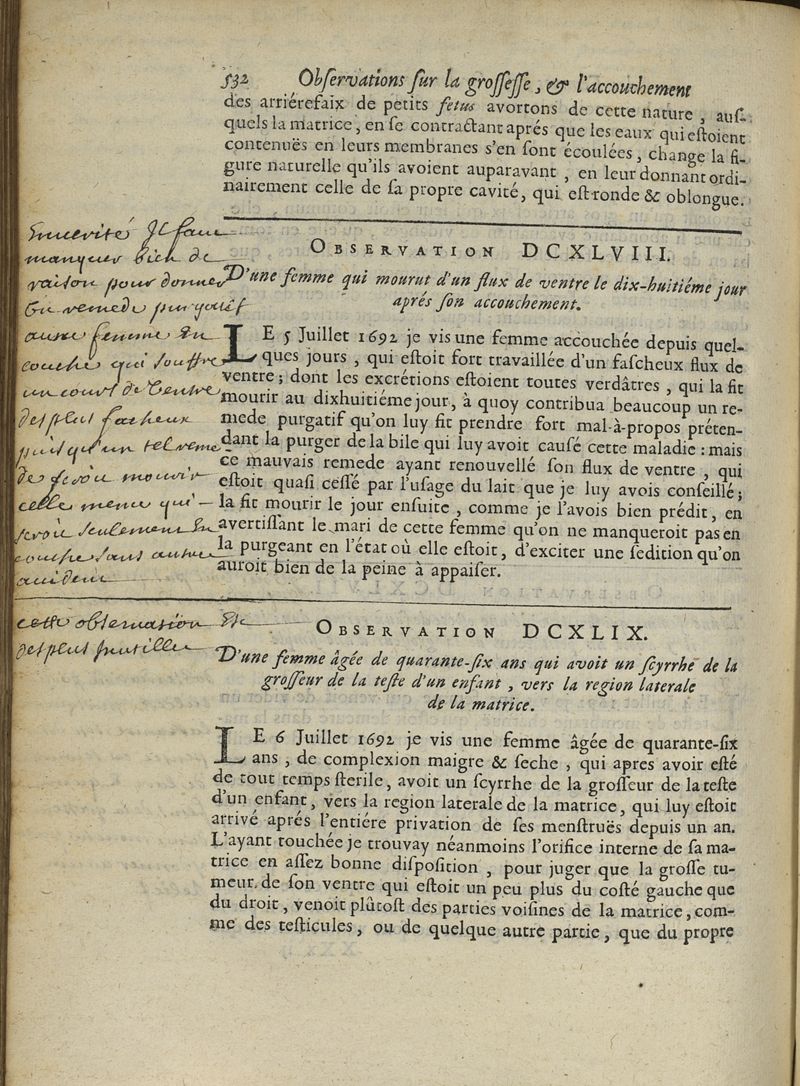 532 Observations sur la grossesse, & l'accouchement
des arriérefaix de petits fetus avortons de cette nature, aus-
quels la matrice, en se contractant aprés que les eaux qui estoient
contenuës en leurs membranes s'en sont écoulées, change la fi-
gure naturelle qu'ils avoient auparavant, en leur donnant ordi-
nairement celle de sa propre cavité, qui est ronde & oblongue.
OBSERVATION DCXLVIII.
D'une femme qui mourut d'un flux de ventre le dix-huitiéme jour
aprés son accouchement.
LE 5 Juillet 1692 je vis une femme accouchée depuis quel-
ques jours, qui estoit fort travaillée d'un fascheux flux de
ventre; dont les excrétions estoient toutes verdâtres, qui la fit
mourir au dixhuitiéme jour, à quoy contribua beaucoup un re-
mede purgatif qu'on luy fit prendre fort mal-à-propos préten-
dant la purger de la bile qui luy avoit causé cette maladie: mais
ce mauvais remede ayant renouvellé son flux de ventre, qui
estoit quasi cessé par l'usage du lait que je luy avois conseillé;
la fit mourir le jour ensuite, comme je l'avois bien prédit, en
avertissant le mari de cette femme qu'on ne manqueroit pas en
la purgeant en l'état où elle estoit, d'exciter une sedition qu'on
auroit bien de la peine à appaiser.
en verité Il faut
manquer bien de
raison pour donner
un remede purgatif
a une femme en
couche qui souffre
un cours de ventre
des plus facheux
puis qu'un tel reme
de feroit mourir
celle meme qui
seroit seulement en
couche sans autre
accident
OBSERVATION DCXLIX.
D'une femme âgée de quarante-six ans qui avoit un scyrrhe de la
grosseur de la teste d'un enfant, vers la region laterale
de la matrice.
LE 6 Juillet 1692 je vis une femme âgée de quarante-six
ans, de complexion maigre & seche, qui apres avoir esté
de tout temps sterile, avoit un scyrrhe de la grosseur de la teste
d'un enfant, vers la region laterale de la matrice, qui luy estoit
arrivé aprés l'entiére privation de ses menstruës depuis un an.
L'ayant touchée je trouvay néanmoins l'orifice interne de sa ma-
trice en assez bonne disposition, pour juger que la grosse tu-
meur de son ventre qui estoit un peu plus du costé gauche que
du droit, venoit plûtost des parties voisines de la matrice, com-
me des testicules, ou de quelque autre partie, que du propre
cette observation est
des plus inutilles